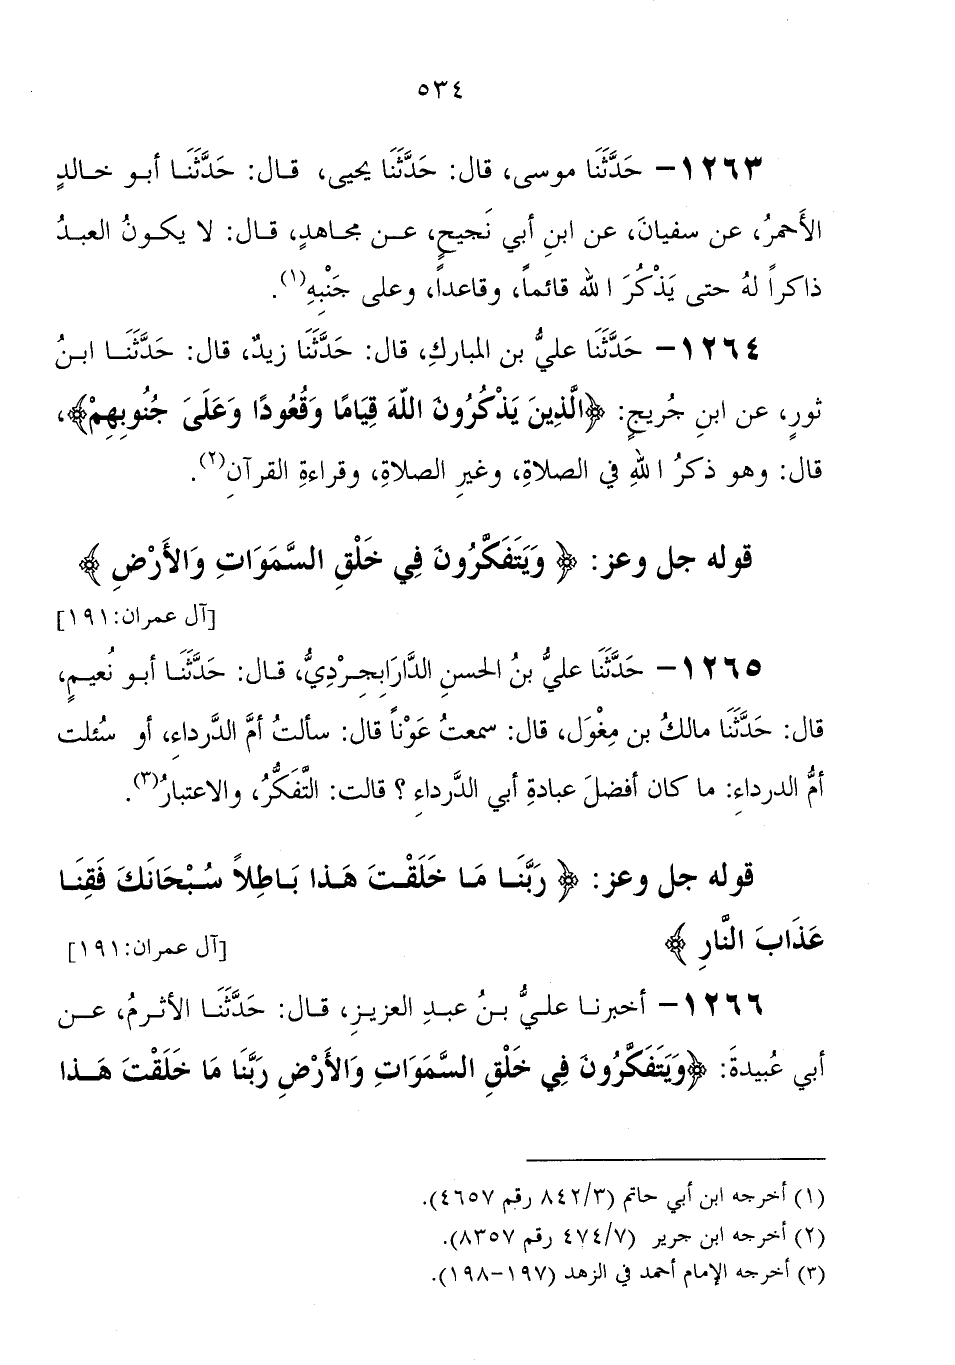 ٥٣٤
١٢٦٣- حَدَّثَنَا موسى، قال: حَدَّثَنَا يحيى، قـال: حَدَّثَنَـا أبـو خـالدٍ
الأَحمرُ، عن سفيانَ، عن ابنِ أبي نَجيحٍ، عـن مجاهدٍ، قـال: لا يكـونُ العبـدُ
ذاكراً لهُ حتى يَذْكُرَ الله قائماً، وقاعداً، وعلى جَنْبِهِ(١).
١٢٦٤- حَدَّثَنَا عليُّ بن المباركِ، قال: حَدَّثَنَا زيدٌ، قال: حَدَّثَنَـا ابـنُ
ثورٍ، عن ابنِ جُريجٍ: ﴿الَّذِينَ يَذْكُرُونَ اللَّهَ قِيَامًا وَقُعُودًا وَعَلَىَ جُنُوبِهِمْ﴾،
قال: وهو ذكرُ اللهِ في الصلاةِ، وغيرِ الصلاةِ، وقراءةِ القرآنِ(٢).
قوله جل وعز: ﴿ وَيَتَفَكَّرُونَ فِي خَلْقِ السَّمَوَاتِ وَالأَرْضِ ﴾
[آل عمران:١٩١]
١٢٦٥- حَدَّثَنَا عليُّ بنُ الحسنِ الدَّارَابِجِـرْدِيُّ، قـال: حَدَّثَنَـا أبـو نُعيـمٍ،
قال: حَدَّثَنَا مالكُ بن مِغْوَل، قال: سمعتُ عَوْناً قال: سألتُ أمَّ الدَّرداءِ، أو سُئلت
أمُّ الدرداءِ: ما كان أفضلَ عبادةِ أبي الدَّرداءِ ؟ قالت: التَّفَكُّرُ، والاعتبارُ(٣).
قوله جل وعز: ﴿ رَبَّنَـا مَـا خَلَقْـتَ هَـذا بَـاطِلاً سُـبْحَانَكَ فَقِنَـا
عَذَابَ النَّارِ ﴾ [آل عمران:١٩١]
١٢٦٦- أخبرنـا علـيُّ بـنُ عبـدِ العزيـزِ، قـال: حَدَّثَنَـا الأثـرمُ، عـن
أبي عُبيدةَ: ﴿وَيَتَفَكَّرُونَ فِي خَلْقِ السَّمَوَاتِ وَالأَرْضِ رَبَّنَا مَا خَلَقْتَ هَـذا
(١) أخرجه ابن أبي حاتم (٨٤٢/٣ رقم ٤٦٥٧).
(٢) أخرجه ابن جرير (٤٧٤/٧ رقم ٨٣٥٧).
(٣) أخرجه الإمام أحمد في الزهد (١٩٧-١٩٨).